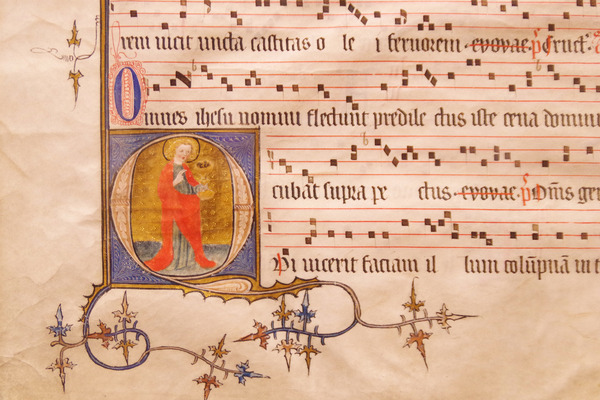 rem uicit uncta castitas o le i feruorem. euouae. p̄ Eruct.
Omnes ihesu nomini flectunt predile ctus iste cena dominu
cubat supra pe ctus euouae. p̄ Dn̄s ge
QVi uicerit faciam il lum colūpnā in t